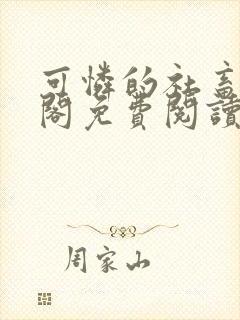 可憐的社畜
閣免費閱讀
周家山